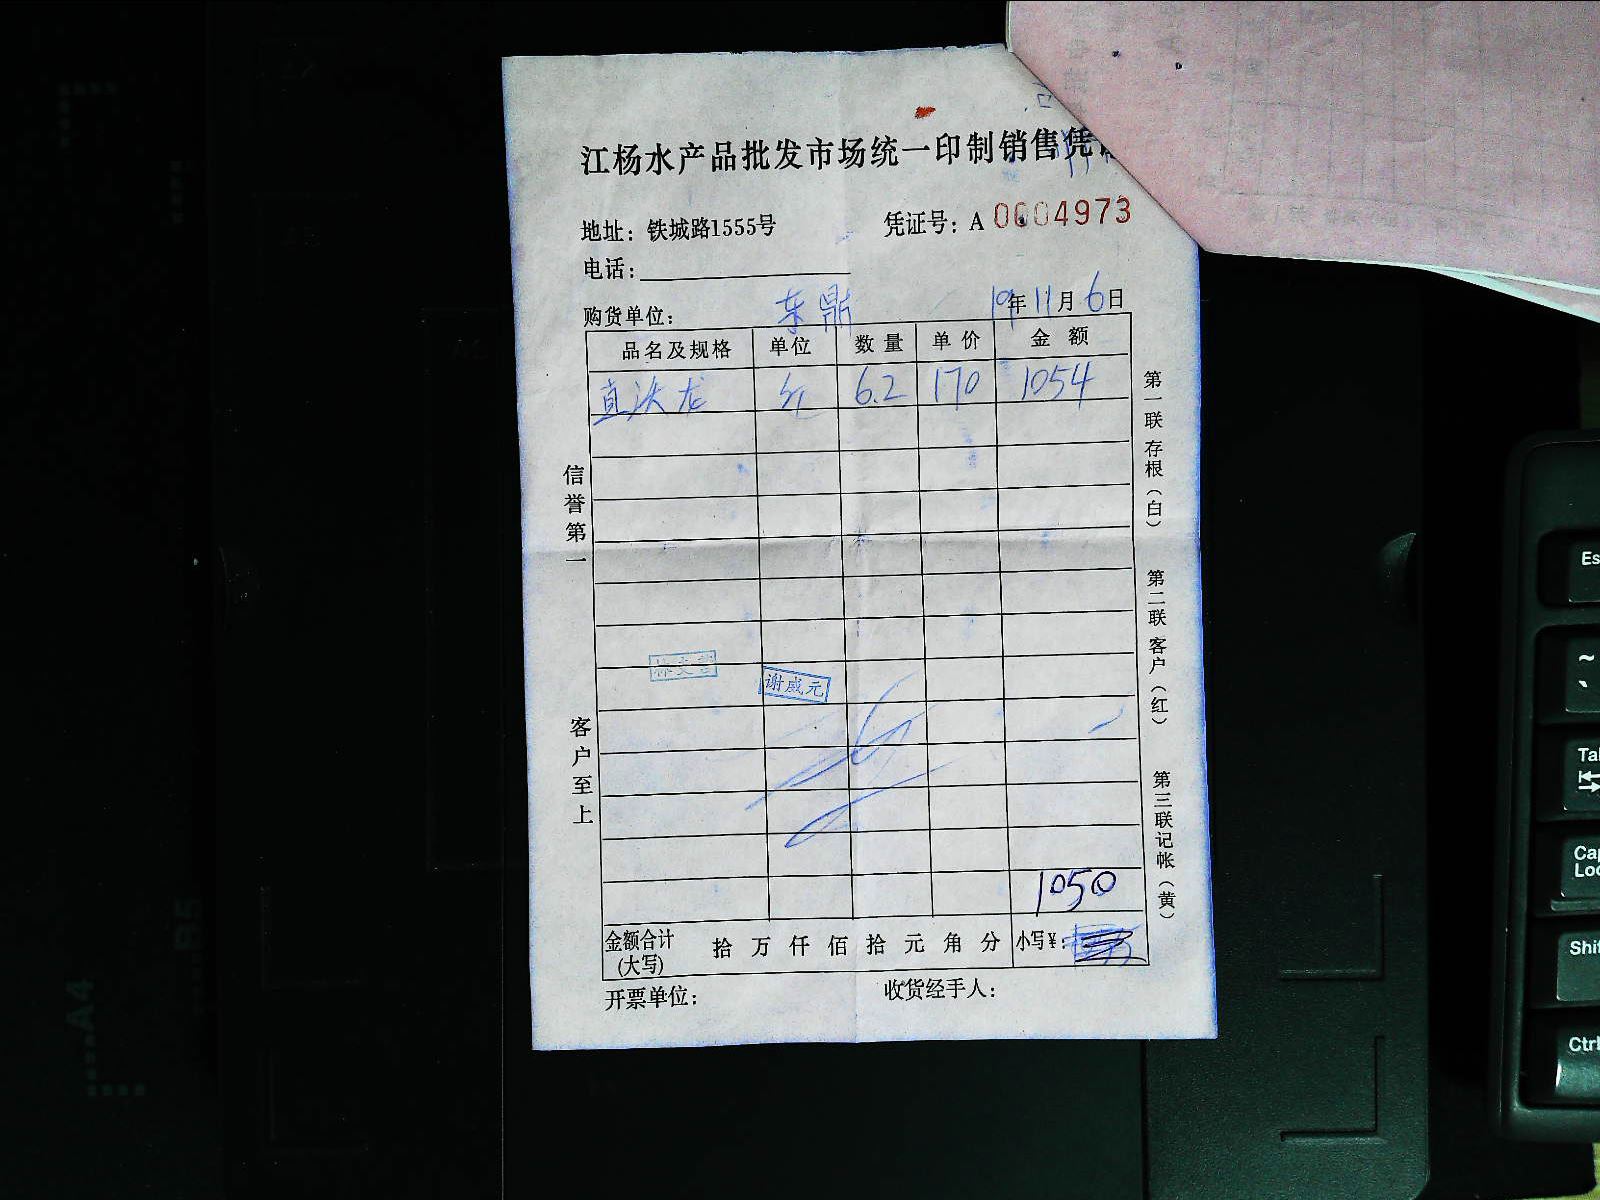 江杨水产品批发市场统一印制销售凭
地址：铁城路1555号 凭证号：A 0004973
电话：
购货单位： 东鼎 19年11月6日
品名及规格 单位 数量 单价 金额
直 龙 6.2 170 1054
信誉第一
客户至上
谢威元
1050
金额合计(大写) 拾 万 仟 佰 拾 元 角 分 小写¥：
开票单位： 收货经手人：
第一联 存根（白）
第二联 客户（红）
第三联 记帐（黄）
A4
B5
Es
~
`
Ta
Ca
Lo
Shi
Ctrl